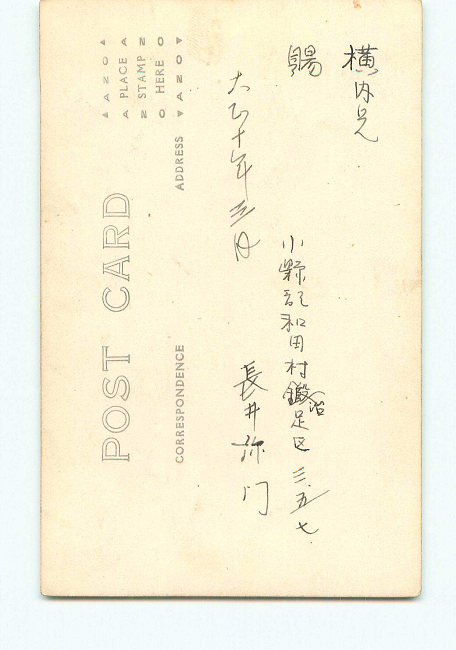 横内兄
賜
小縣郡和田村鍛治足区三.五七
大正十年三月
長井弥門
POST CARD
CORRESPONDENCE
ADDRESS
AZO
PLACE
STAMP
HERE
AZO